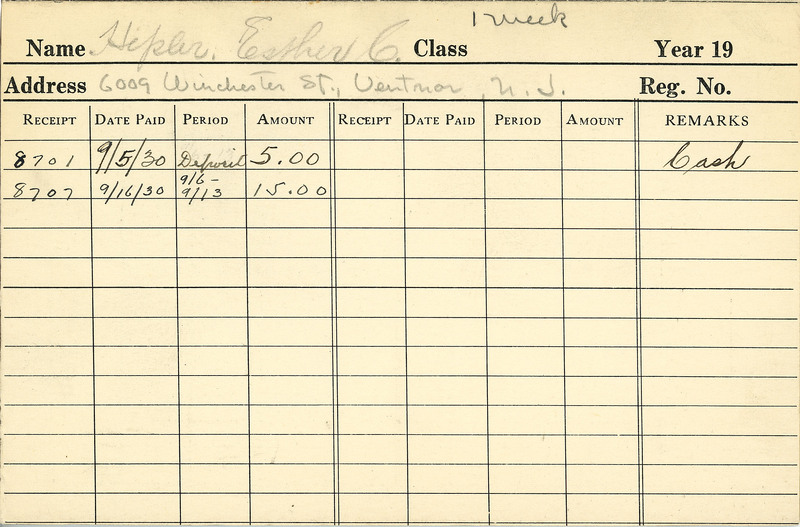 1 week
Name Hipler, Esther C. Class Year 19
Address 6009 Winchester St., Ventnor, N. J. Reg. No.
RECEIPT DATE PAID PERIOD AMOUNT RECEIPT DATE PAID PERIOD AMOUNT REMARKS
8701 9/5/30 Deposit 5.00 Cash
9/6-
8707 9/16/30 9/13 15.00